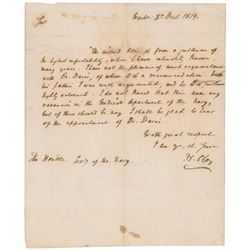 Wash. 8th Decr 1819.
Sir
The inclosed letter is from a gentleman of
the highest respectability, whom I have intimately known
many years. I have not the pleasure of much acquaintance
with Dr. Davis, of whom it is a recommendation. With
his father I was well acquainted, and he is a gentleman
highly esteemed. I do not know that there are any
vacancies in the Medical department of the Navy,
but if there should be any I shall be glad to hear
of the appointment of Dr. Davis.
With great respect
I am yr. ob. Serv.
The Honble Secy of the Navy.
H. Clay